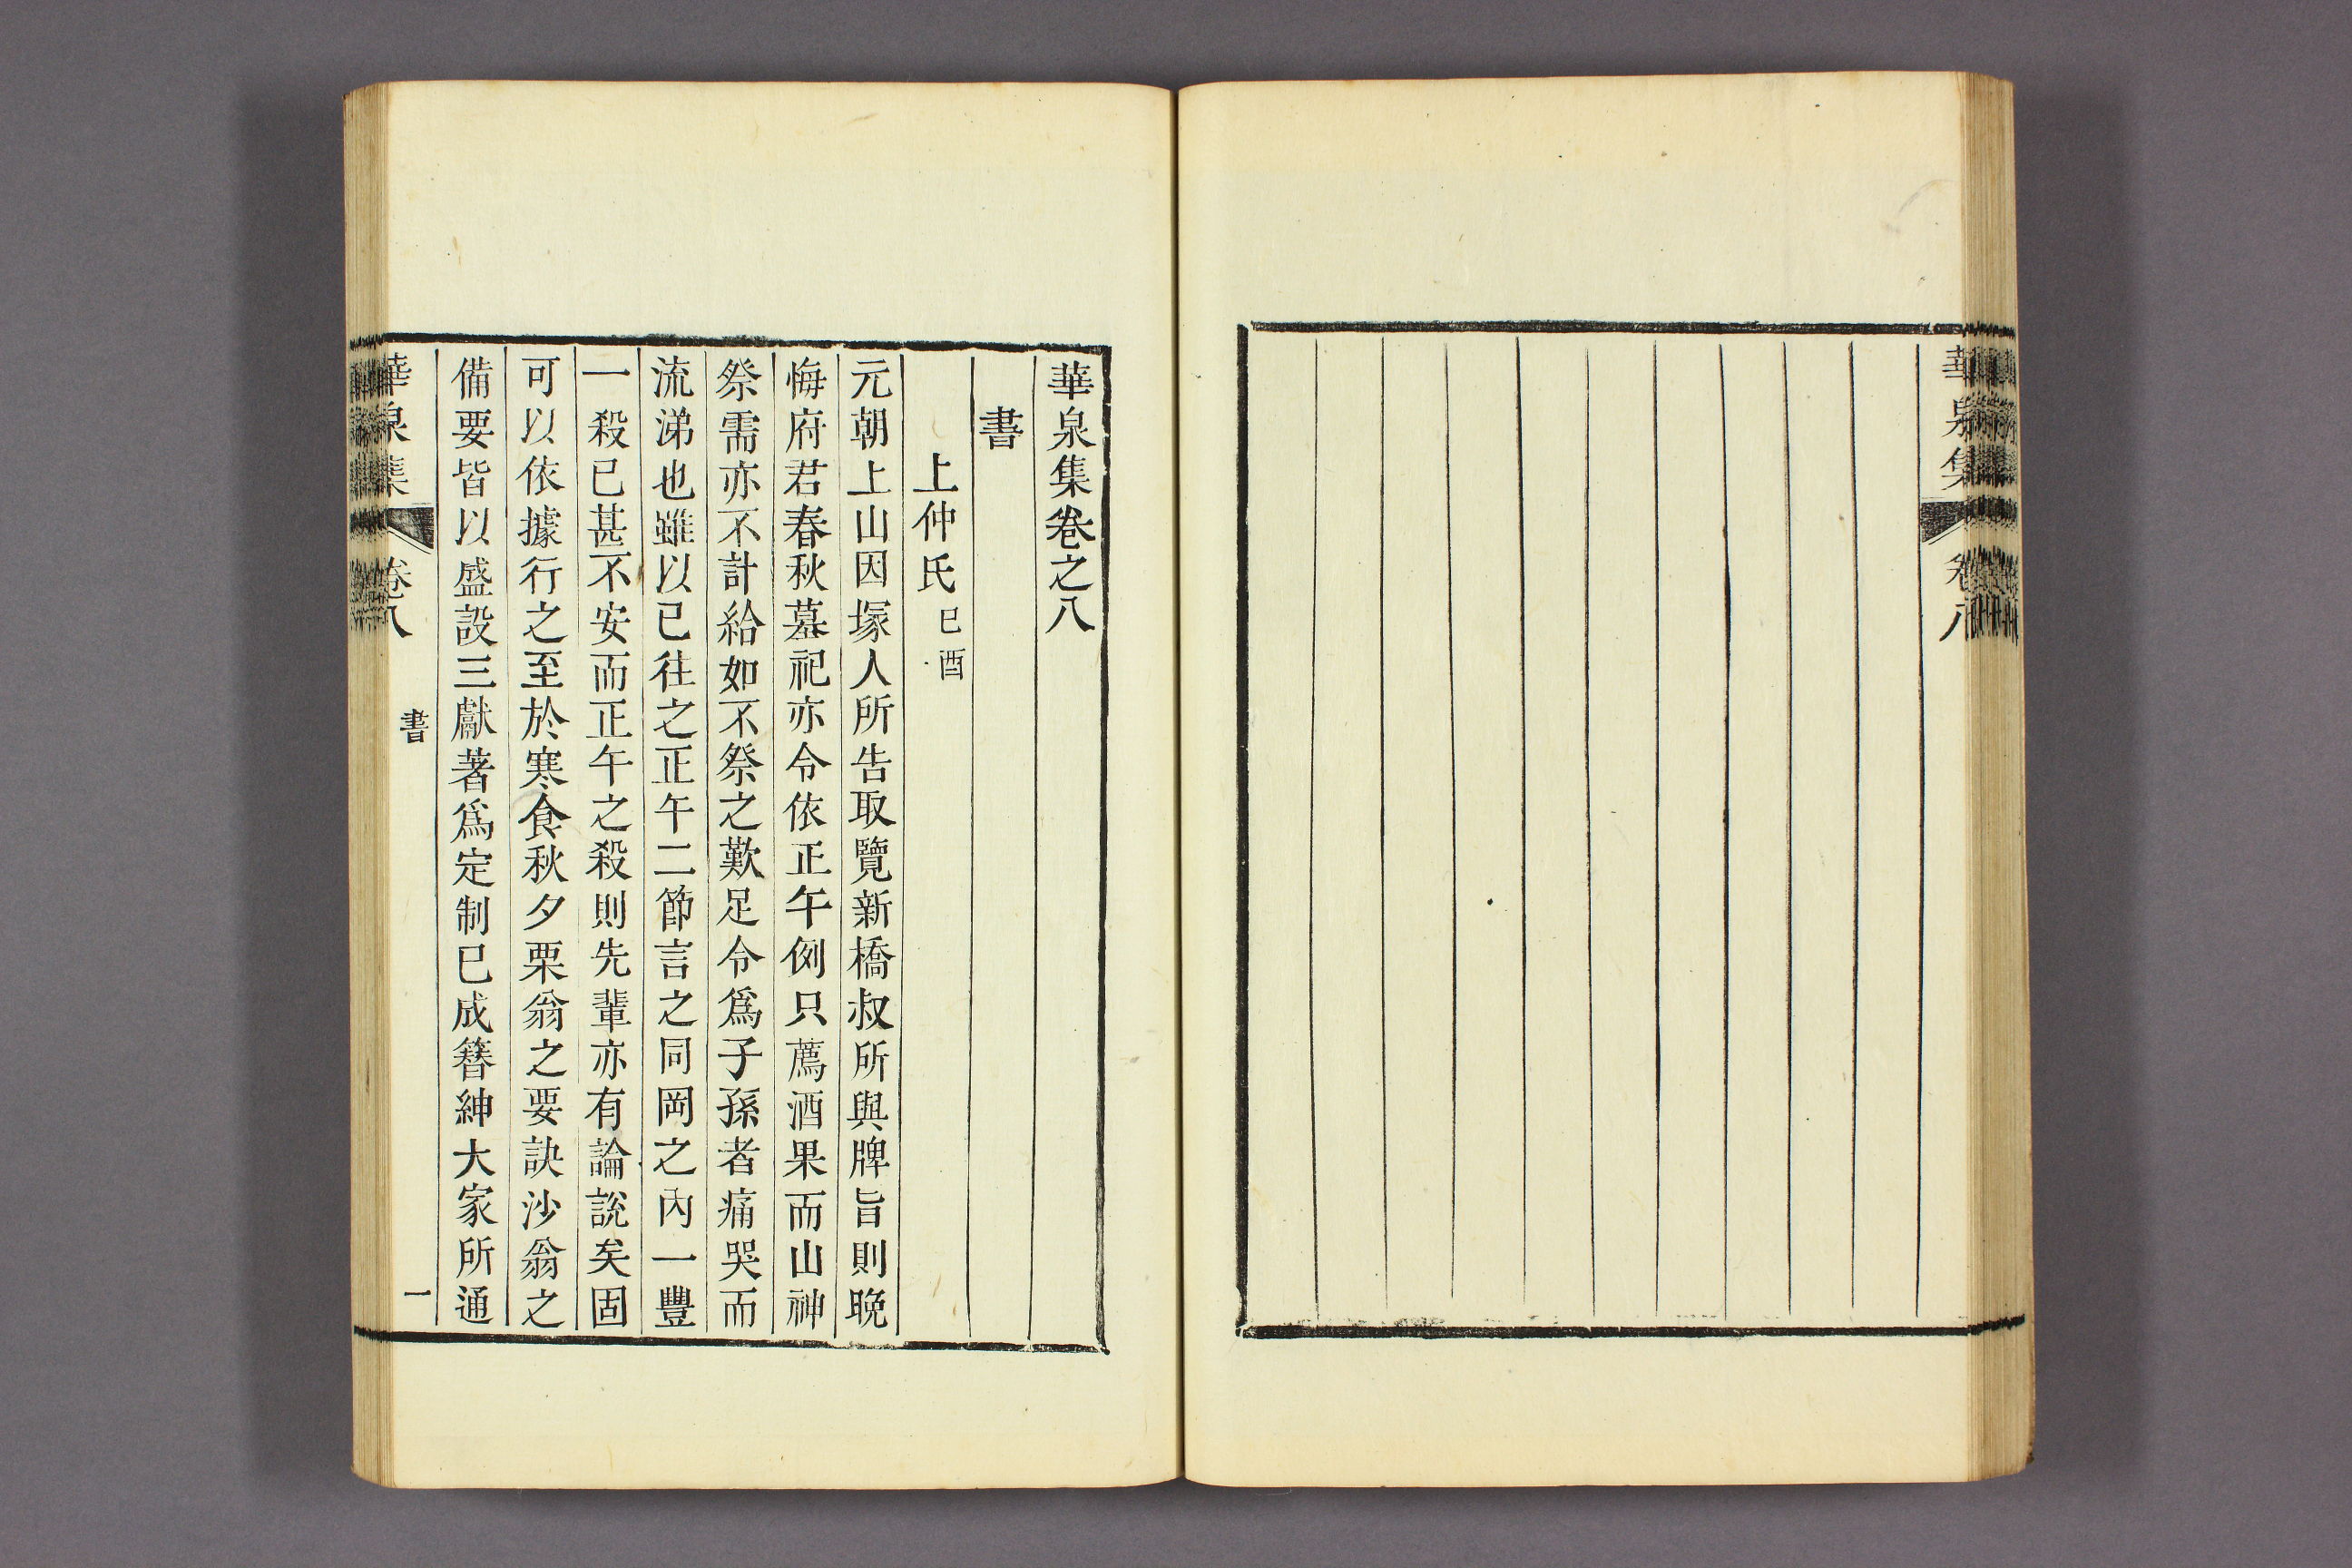 華泉集
卷八
華泉集卷之八
書
上仲氏 巳酉
元朝上山因塚人所告取覽新橋叔所與牌旨則晩
悔府君春秋墓祀亦令依正午例只薦酒果而山神
祭需亦不計給如不祭之歎足令爲子孫者痛哭而
流涕也雖以已往之正午二節言之同岡之內一豐
一殺已甚不安而正午之殺則先輩亦有論說矣固
可以依據行之至於寒食秋夕栗翁之要訣沙翁之
備要皆以盛設三獻著爲定制已成簪紳大家所通
華泉集 卷八 書 一